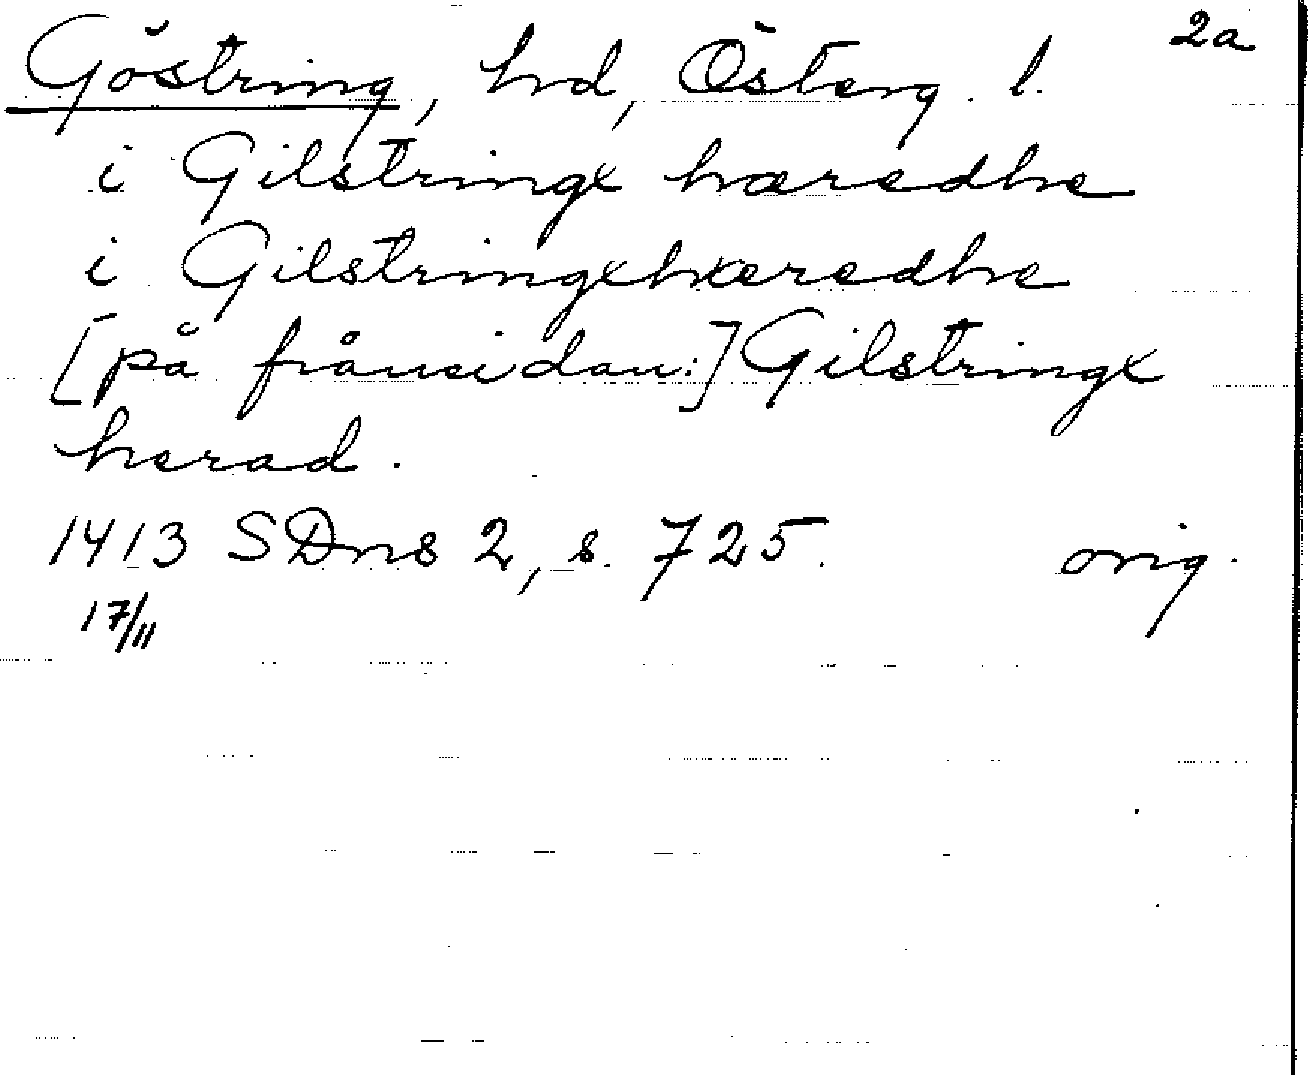 2a
Göstring, hd, Österg. l.
i Gilstringx hæredhe
i Gilstringxhæredhe
[på frånsidan:] Gilstringx
herad.
1413 SDns 2, s. 725. orig.
17/11